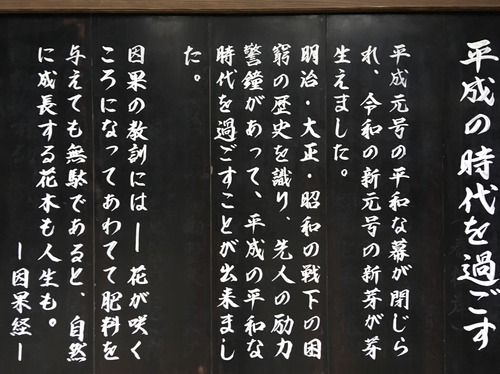 平成の時代を過ごす
平成元号の平和な幕が閉じら
れ、令和の新元号の新芽が芽
生えました。
明治・大正・昭和の戦下の困
窮の歴史を識り、先人の励力
警鐘があって、平成の平和な
時代を過ごすことが出来まし
た。
因果の教訓には―花が咲く
ころになってあわてて肥料を
与えても無駄であると、自然
に成長する花木も人生も。
―因果経―